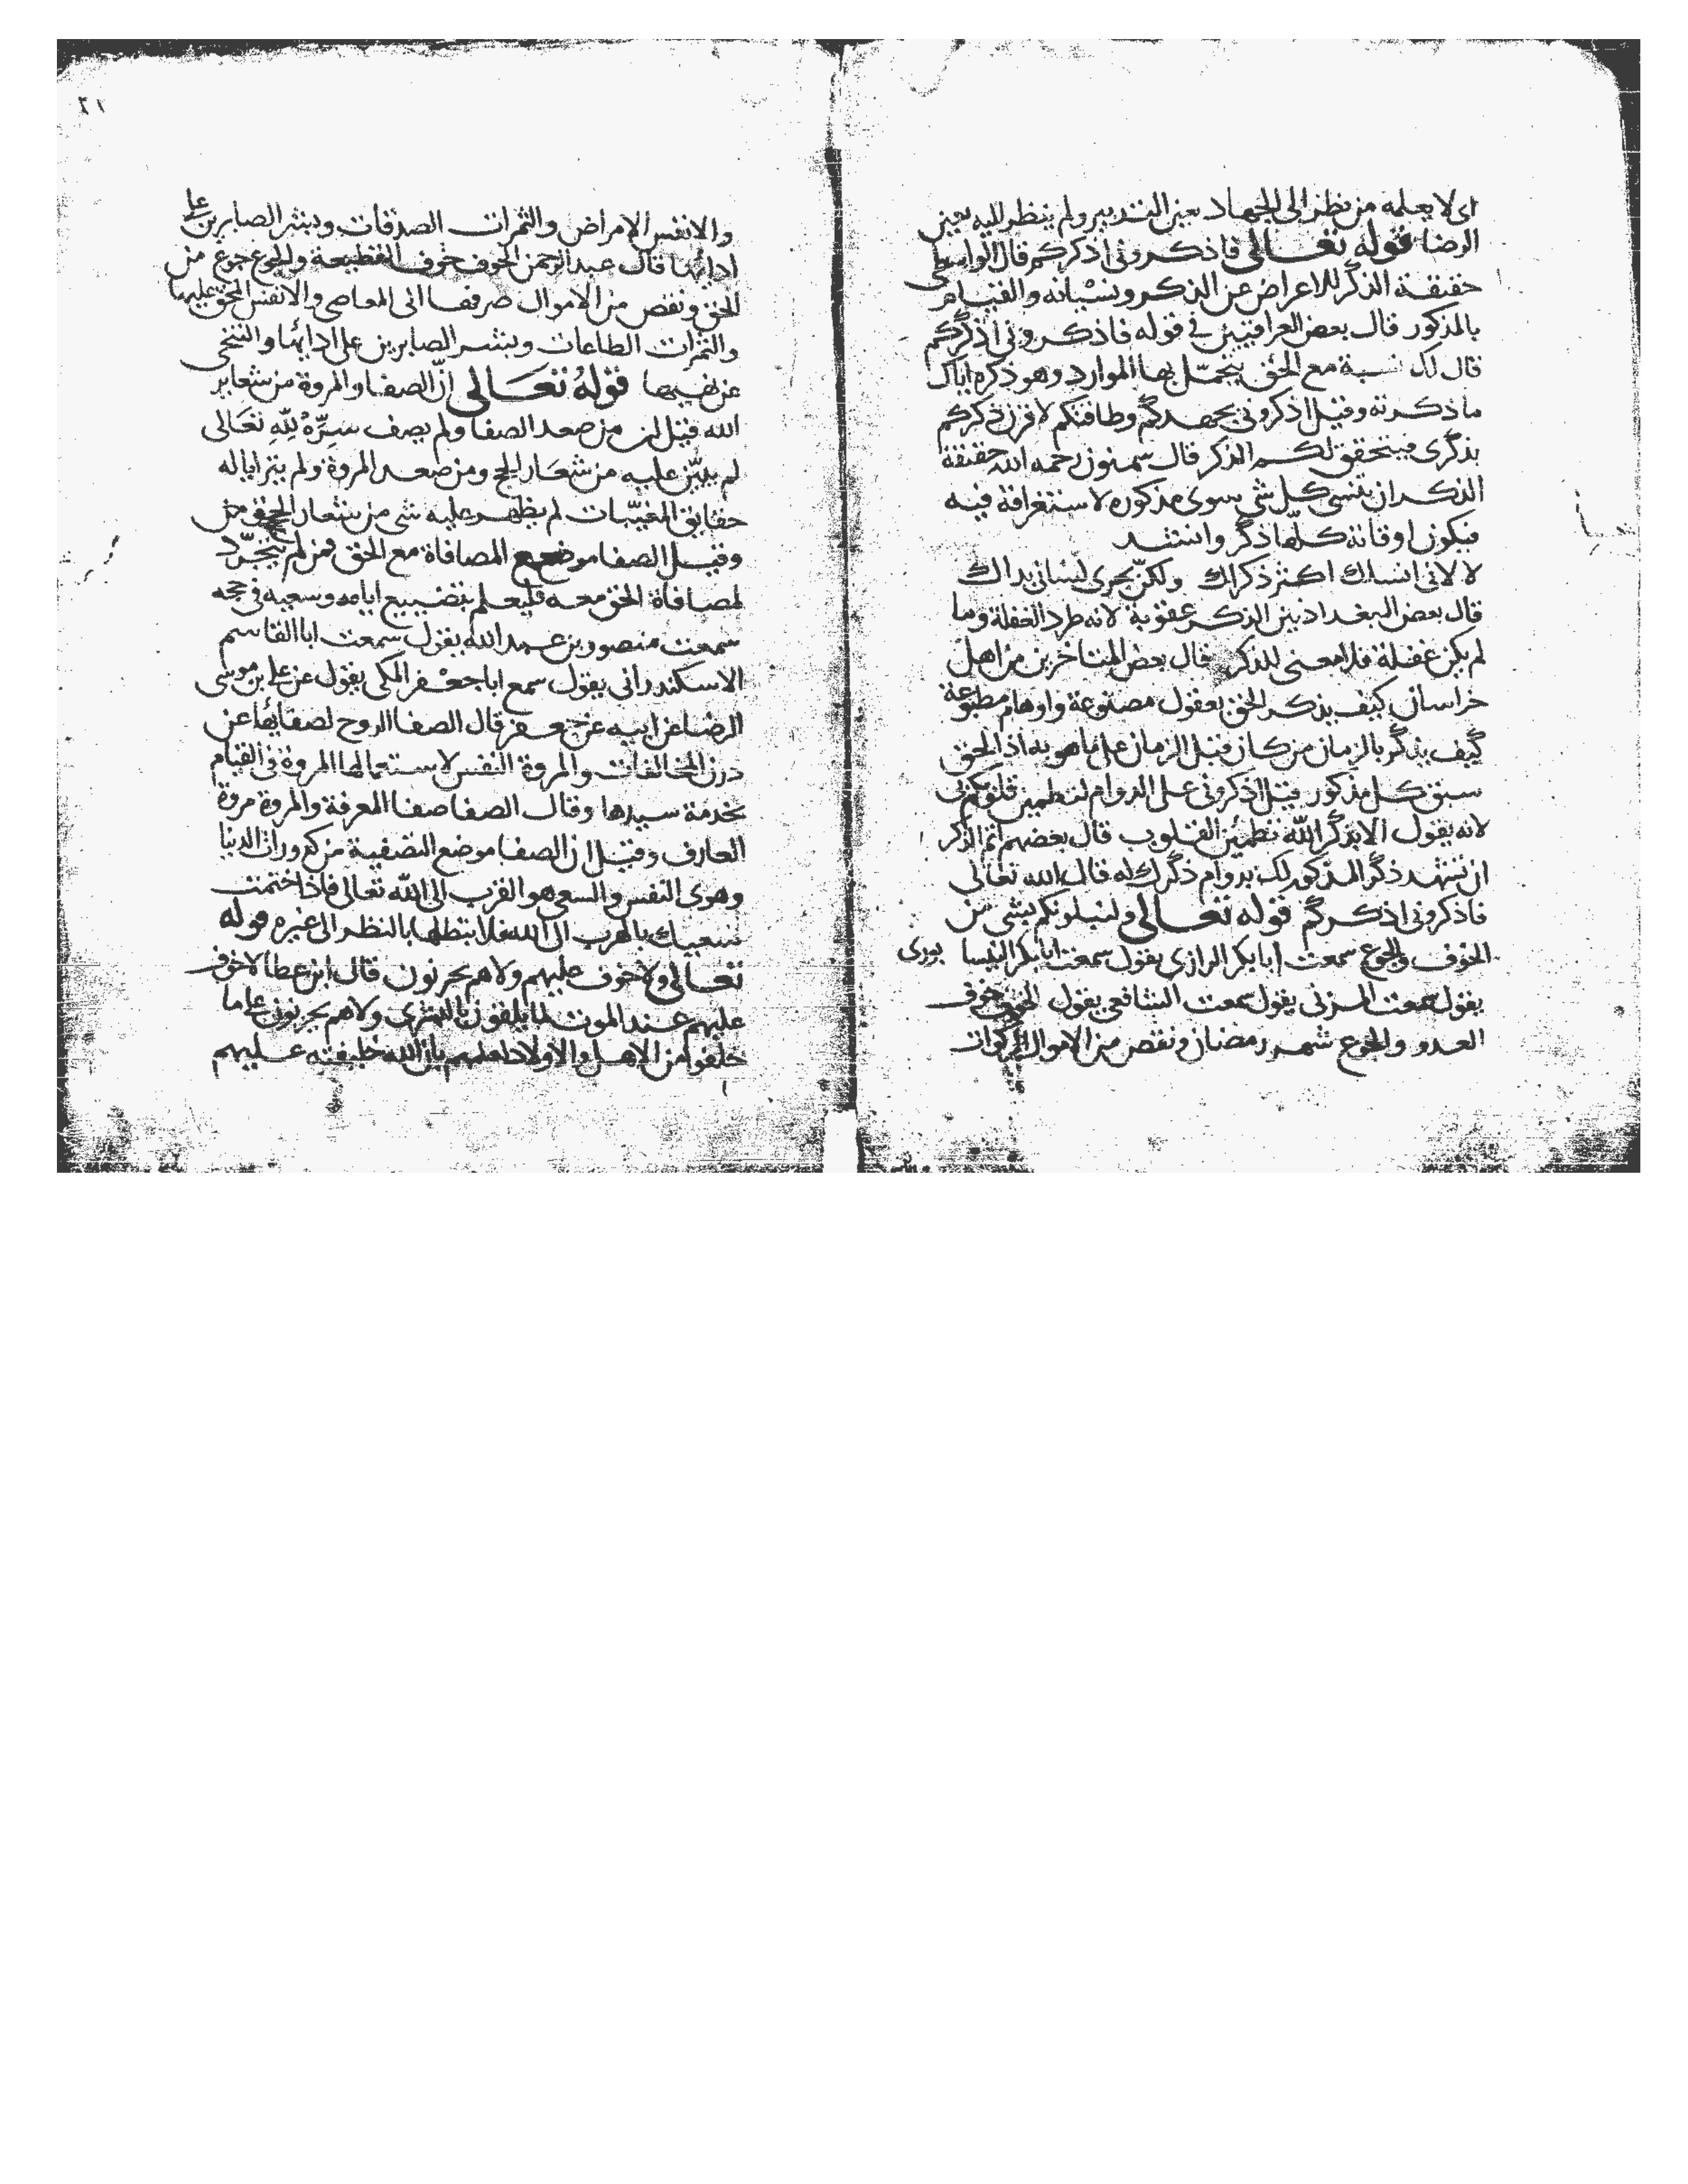 اى لا يعلمه من نظر الى الجهاد بعين التدبير ولم ينظر اليه بعين
الرضا قوله تعالى فاذكرونى اذكركم قال الواسطى
حقيقة الذكر للاعراض عن الذكر ونسيانه والقيام
بالمذكور قال بعض العراقيين فى قوله فاذكرونى اذكركم
قال لك نسبة مع الحق يتحمل بها الموارد وهو ذكره اياك
ما ذكرته وقيل اذكرونى بجهدكم وطاقتكم لاقرن ذكركم
بذكرى فيتحقق لكم الذكر قال سمنون رحمه الله حقيقة
الذكر ان ينسى كل شى سوى مذكوره لاستغراقه فيه
فيكون اوقاته كلها ذكر وانشد
لا لانى انساك اكثر ذكراك ولكن يجرى لسانى بذاك
قال بعض البغداذيين الذكر عقوبة لانه طرد الغفلة وما
لم يكن غفلة فلا معنى للذكر قال بعض المتاخرين من اهل
خراسان كيف يذكر الحق بعقول مصنوعة واوهام مطبوعة
كيف يذكر بالزمان من كان قبل الزمان على ما هو به اذ الحق
سبق كل مذكور قيل اذكرونى على الدوام لتطمين قلوبكم بى
لانه يقول الا بذكر الله تطمئن القلوب قال بعضهم اتم الذكر
ان تشهد ذكر المذكور لك بدوام ذكرك له قال الله تعالى
فاذكرونى اذكركم قوله تعالى ولنبلونكم بشى من
الخوف والجوع سمعت ابا بكر الرازى يقول سمعت ابا بكر النيسابورى
يقول سمعت المزنى يقول سمعت الشافعى يقول الخوف خوف
العدو والجوع شهر رمضان ونقص من الاموال الزكوات
٢١
والانفس الامراض والثمرات الصدقات وبشر الصابرين على
ادائها قال عبد الرحمن الخوف خوف القطيعة والجوع جوع من
الحق ونقص من الاموال صرفها الى المعاصى والانفس الحق عليها
والثمرات الطاعات وبشر الصابرين على ادائها والتنحى
عن نفيها قوله تعالى ان الصفا والمروة من شعاير
الله قيل لمن من صعد الصفا ولم يصف سره لله تعالى
لم يبين عليه من شعار الحج ومن صعد المروة ولم يتراياله
حقايق المغيبات لم يظهر عليه شى من شعار الحق
وقيل الصفا موضع المصافاة مع الحق فمن لم يتجرد
لمصافاة الحق معه فليعلم بتضييع ايامه وسعيه فى حجه
سمعت منصور بن عبد الله يقول سمعت ابا القاسم
الاسكندرانى يقول سمع ابا جعفر الملكى يقول عن على بن موسى
الرضا عن ابيه عن جعفر قال الصفا الروح لصفايها عن
درن المخالفات والمروة النفس لاستعمالها المروة فى القيام
بخدمة سيدها وقال الصفا صفا المعرفة والمروة مروة
العارف وقيل ان الصفا موضع التصفية من كدورات الدنيا
وهوى النفس والسعى هو القرب الى الله تعالى فاذا ختمت
سعيك بالهرب الى الله فلا تبطلها بالنظر الى غيره قوله
تعالى ولا خوف عليهم ولا هم يحزنون قال ابن عطا لا خوف
عليهم عند الموت لما يلقون بالبشرى ولا هم يحزنون على ما
خلفوا من الاهل والاولاد لعلمهم بان الله خليفته عليهم